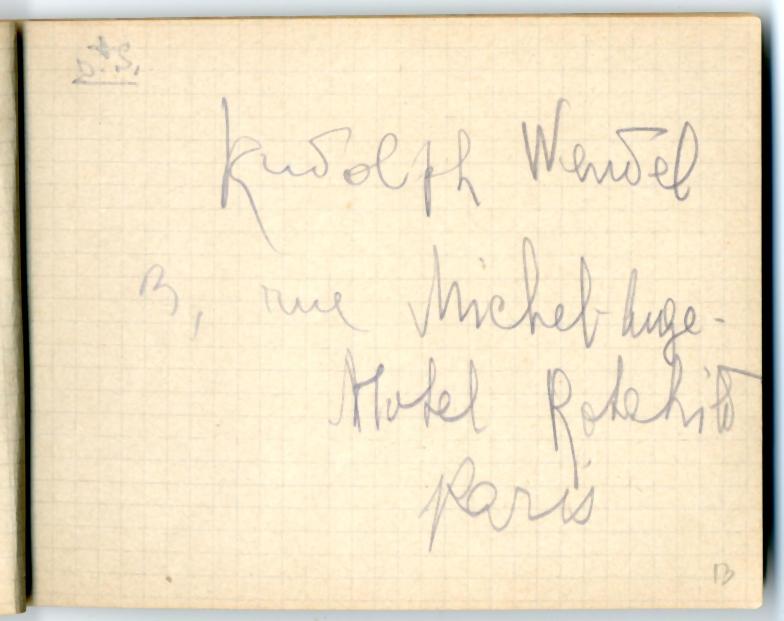 Rudolph Wendel
13, rue Michel-Ange-
Hotel Rotchild
Paris
13